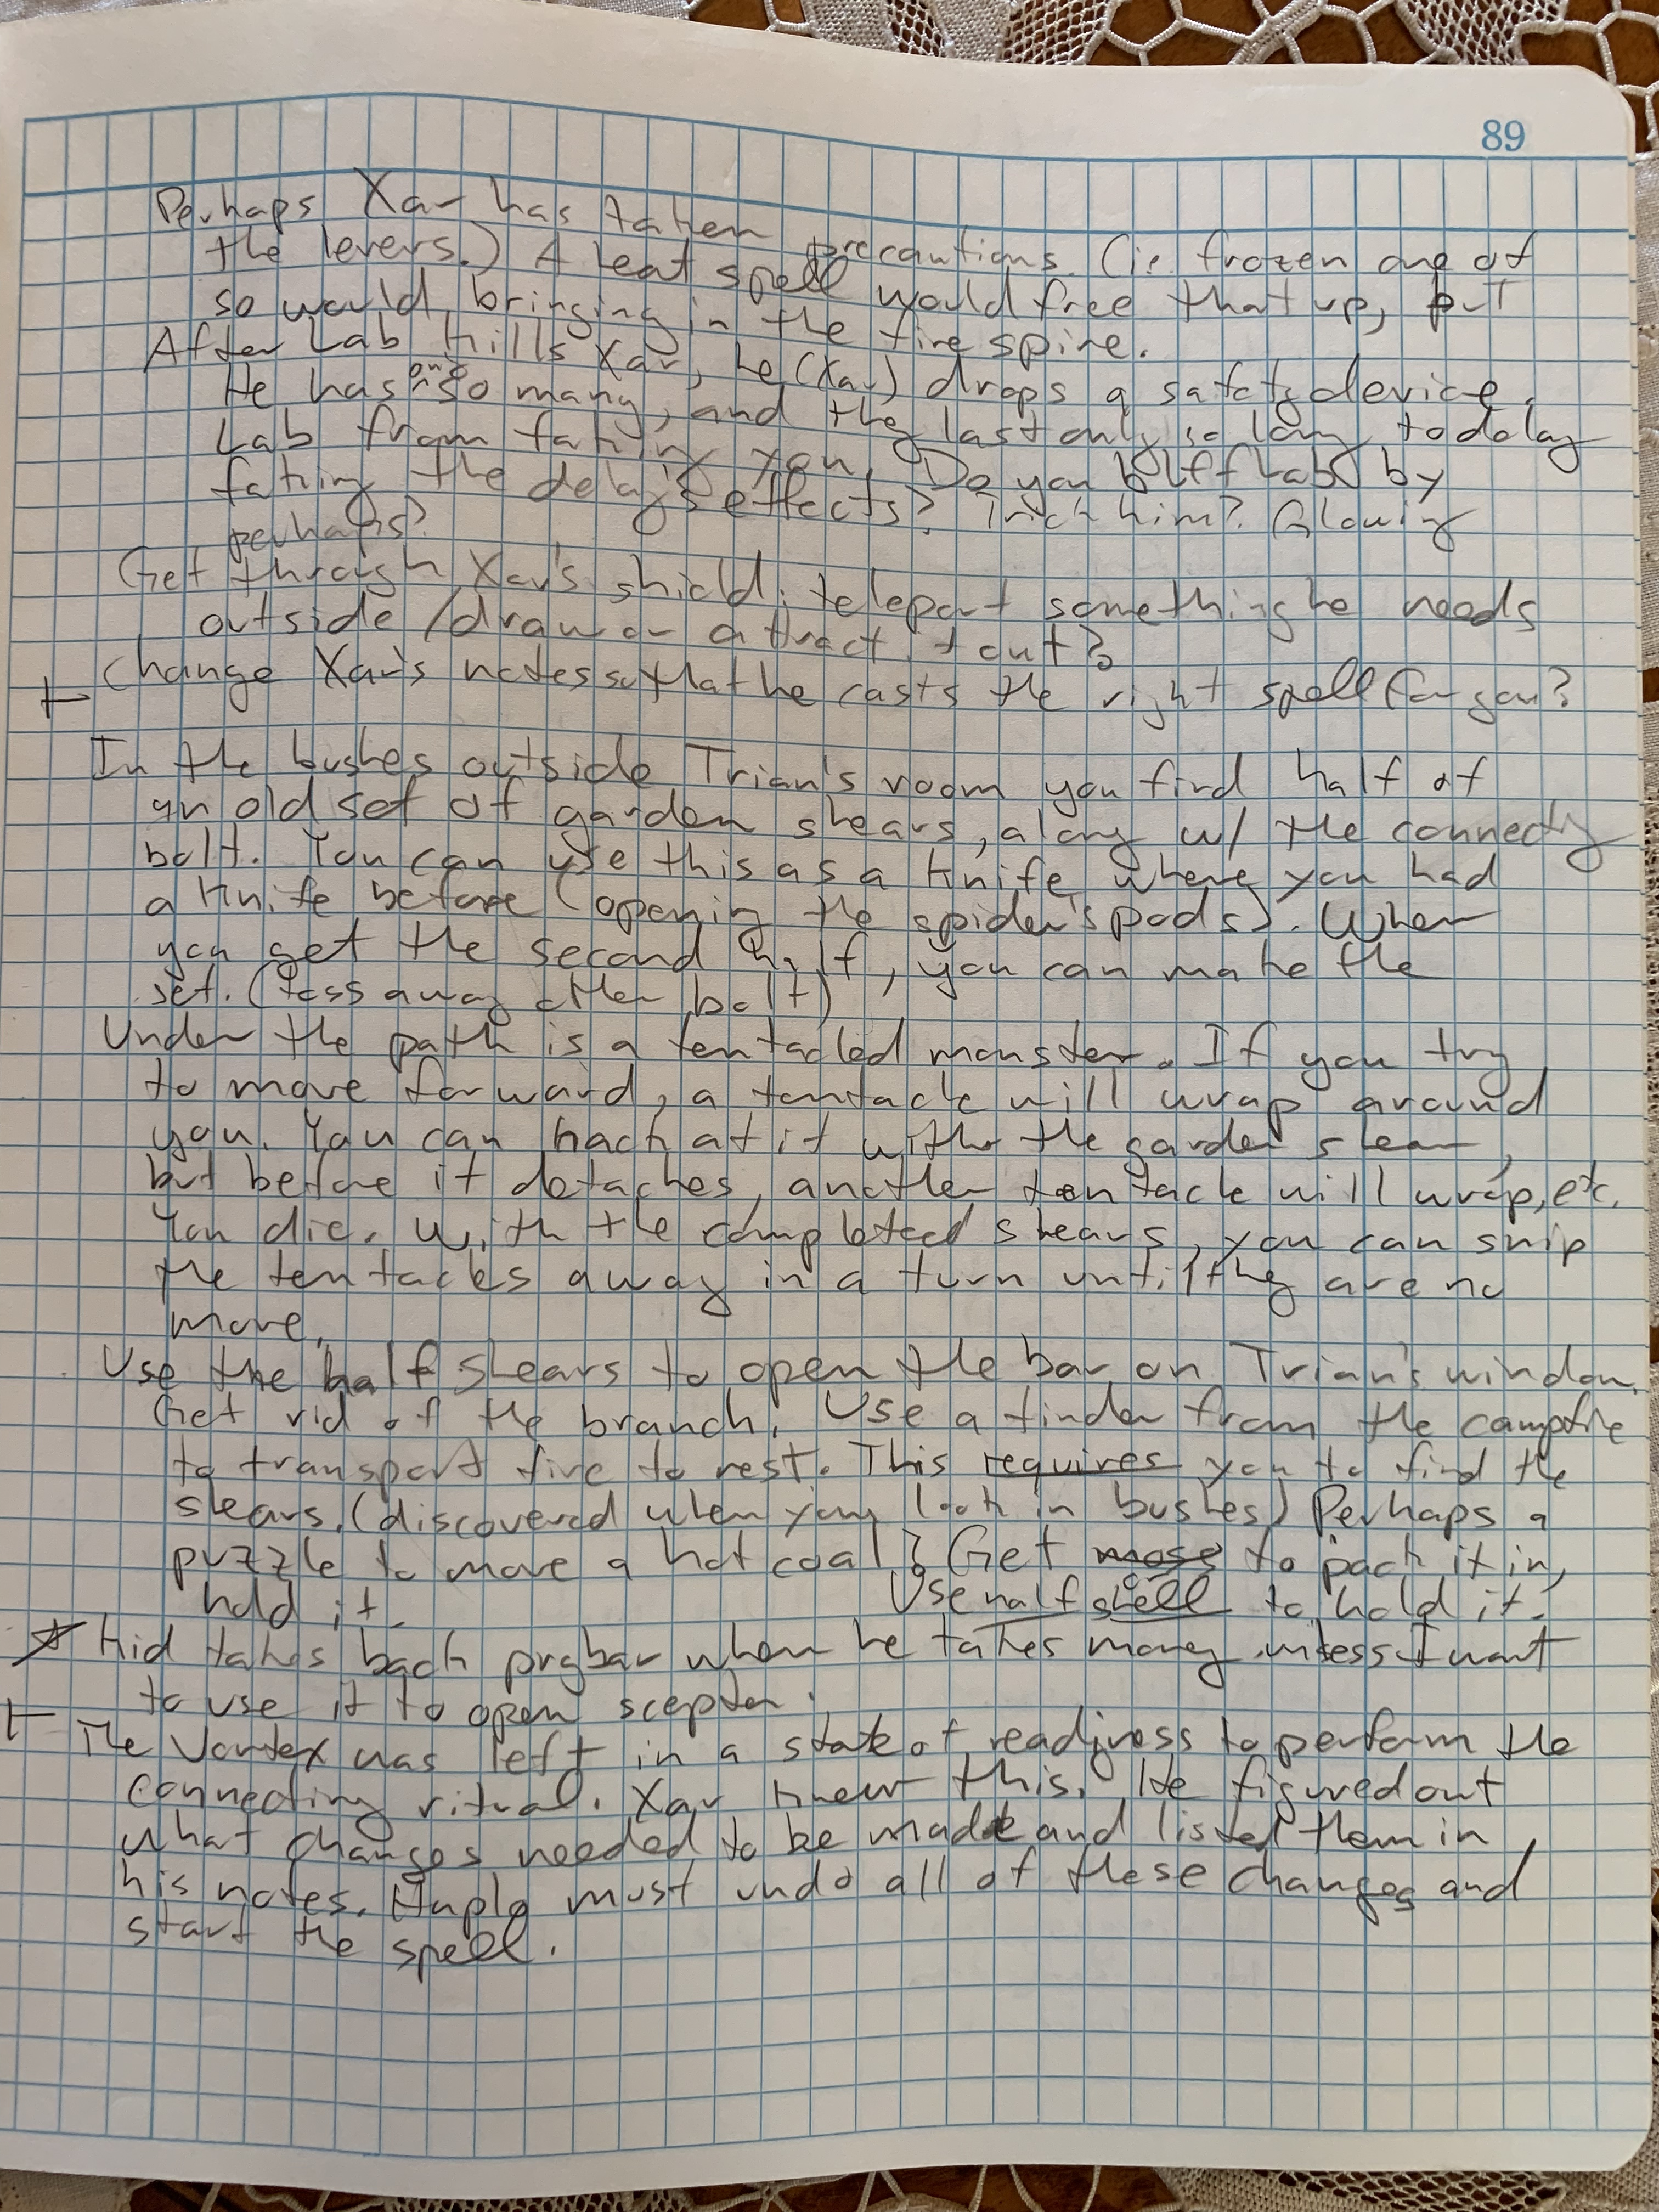 89
Perhaps Xar has taken precautions. (ie frozen one of
the levers.) A heat spell would free that up, but
so would bringing in the fire spire.
After Lab kills Xar, he (Xar) drops a safety device.
He has only so many, and they last only so long, to delay
Lab from taking you. Do you bluff Lab by
faking the delay's effects? Trick him? Glowing
perhaps?
Get through Xar's shield: teleport something he needs
outside / draw or attract it out?
+ Change Xar's notes so that he casts the right spell for you?
In the bushes outside Trian's room you find half of
an old set of garden shears, along w/ the connecting
bolt. You can use this as a knife where you had
a knife before (opening the spider's pods). When
you get the second half, you can make the
set. (Toss away other bolt)
Under the path is a tentacled monster. If you try
to move forward, a tentacle will wrap around
you. You can hack at it with the garden shear,
but before it detaches, another tentacle will wrap, etc.
You die. With the completed shears, you can snip
the tentacles away in a turn until they are no
more.
Use the half shears to open the bar on Trian's window.
Get rid of the branch. Use a tinder from the campfire
to transport fire to rest. This requires you to find the
shears. (discovered when you look in bushes) Perhaps a
puzzle to move a hot coal? Get moss to pack it in,
Use half shell to hold it.
hold it.
☆ Kid takes back prybar when he takes money unless I want
to use it to open scepter.
+ The Vortex was left in a state of readiness to perform the
connecting ritual. Xar knew this. He figured out
what changes needed to be made and listed them in
his notes. Haplo must undo all of these changes and
start the spell.